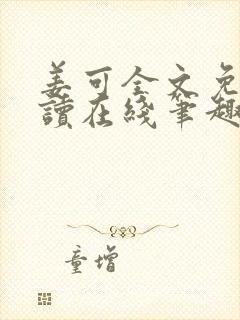 姜可全文免
讀在綫筆趣
童增